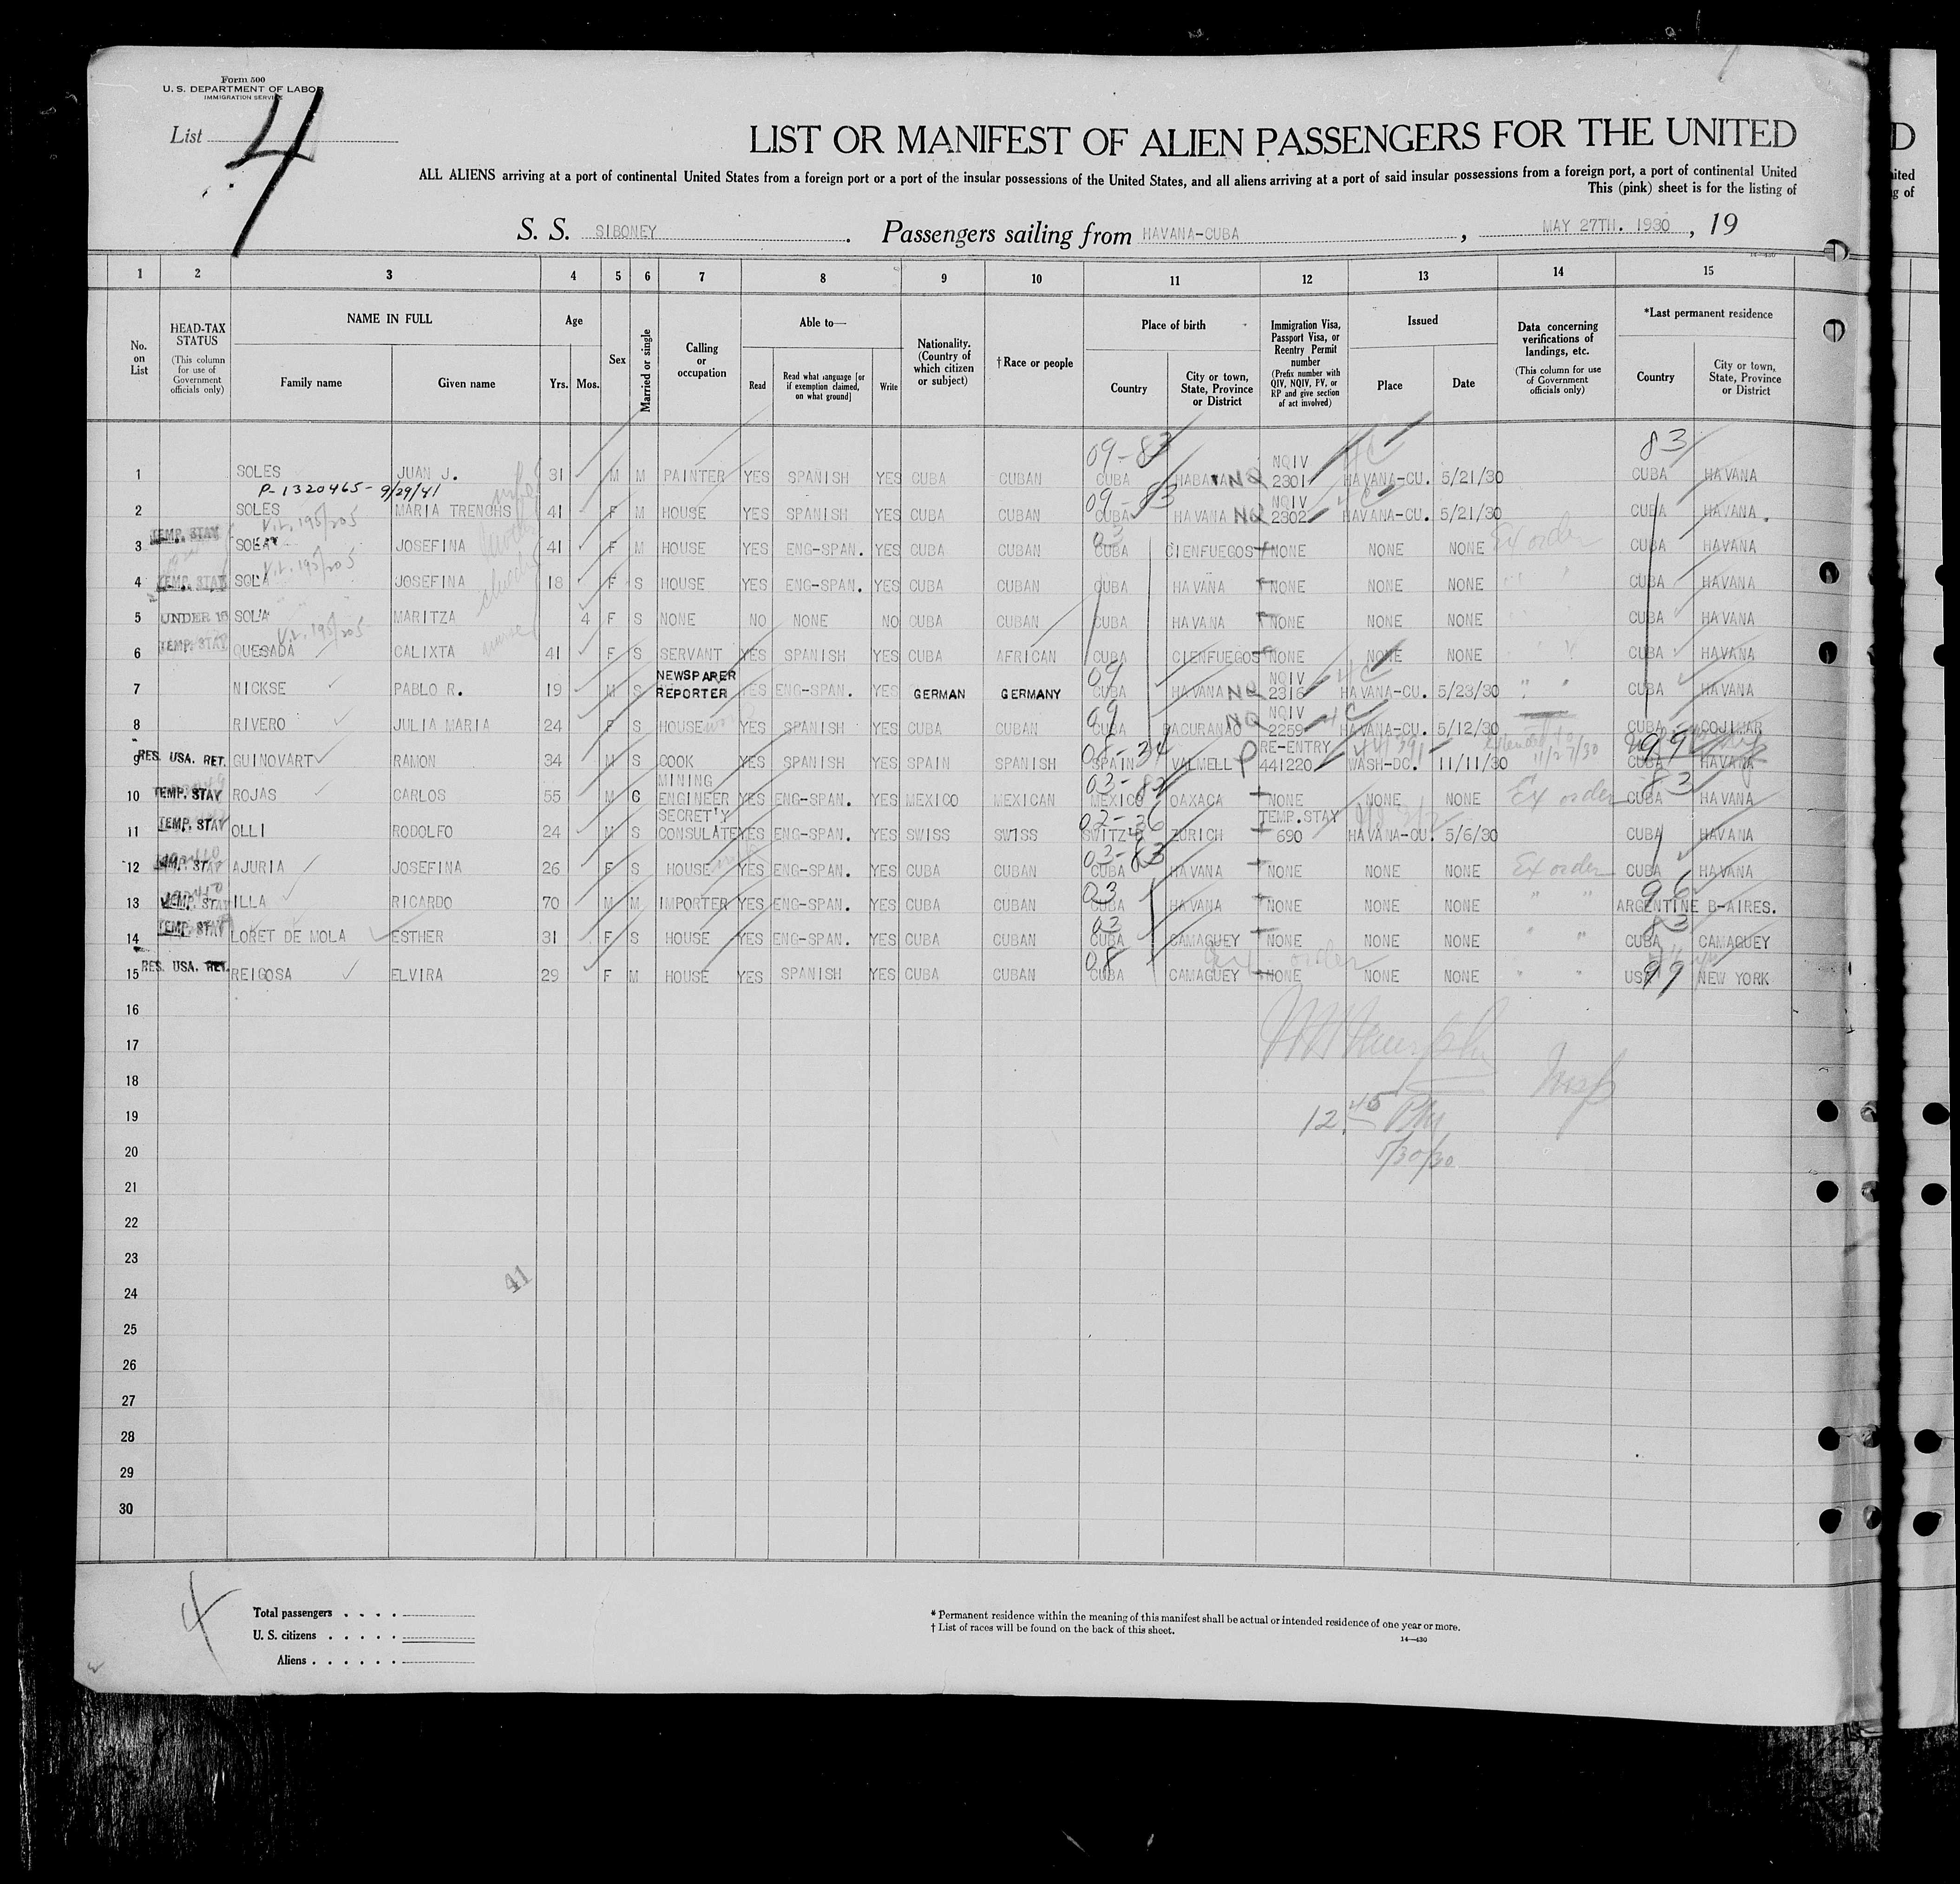 Form 500
U. S. DEPARTMENT OF LABOR
IMMIGRATION SERVICE
List 4
LIST OR MANIFEST OF ALIEN PASSENGERS FOR THE UNITED
ALL ALIENS arriving at a port of continental United States from a foreign port or a port of the insular possessions of the United States, and all aliens arriving at a port of said insular possessions from a foreign port, a port of continental United
This (pink) sheet is for the listing of
S. S. SIBONEY. Passengers sailing from HAVANA-CUBA, MAY 27TH. 1930, 19
1 2 3 4 5 6 7 8 9 10 11 12 13 14 15
No. on List
HEAD-TAX STATUS (This column for use of Government officials only)
NAME IN FULL Family name Given name
Age Yrs. Mos.
Sex
Married or single
Calling or occupation
Able to— Read Read what language [or if exemption claimed, on what ground] Write
Nationality. (Country of which citizen or subject)
†Race or people
Place of birth Country City or town, State, Province or District
Immigration Visa, Passport Visa, or Reentry Permit number (Prefix number with QIV, NQIV, PV, or RP and give section of act involved)
Issued Place Date
Data concerning verifications of landings, etc. (This column for use of Government officials only)
*Last permanent residence Country City or town, State, Province or District
09-83 83
1 SOLES JUAN J. 31 M M PAINTER YES SPANISH YES CUBA CUBAN CUBA HABANA NQ NQIV 2301 HAVANA-CU. 5/21/30 CUBA HAVANA
P-1320465- 9/29/41
09-83
2 SOLES MARIA TRENCHS 41 F M HOUSE YES SPANISH YES CUBA CUBAN CUBA HAVANA NQ NQIV 2302 4C HAVANA-CU. 5/21/30 CUBA HAVANA.
V.L. 195/205
3 TEMP. STAY SOLA JOSEFINA 41 F M HOUSE YES ENG-SPAN. YES CUBA CUBAN 03 CUBA CIENFUEGOS NONE NONE NONE Ex order CUBA HAVANA
V.L. 195/205
4 TEMP. STAY SOLA JOSEFINA 18 F S HOUSE YES ENG-SPAN. YES CUBA CUBAN CUBA HAVANA NONE NONE NONE " " CUBA HAVANA
5 UNDER 16 SOLA MARITZA 4 F S NONE NO NONE NO CUBA CUBAN CUBA HAVANA NONE NONE NONE CUBA HAVANA
V.L. 195/205
6 TEMP. STAY QUESADA CALIXTA nurse 41 F S SERVANT YES SPANISH YES CUBA AFRICAN CUBA CIENFUEGOS NONE NONE NONE CUBA HAVANA
7 NICKSE PABLO R. 19 M S NEWSPAPER REPORTER YES ENG-SPAN. YES GERMAN GERMANY 09 CUBA HAVANA NQ NQIV 2316 4C HAVANA-CU. 5/23/30 " " CUBA HAVANA
8 RIVERO JULIA MARIA 24 F S HOUSE YES SPANISH YES CUBA CUBAN 09 CUBA BACURANAO NQ NQIV 2259 4C HAVANA-CU. 5/12/30 CUBA COJIMAR
9 RES. USA. RET. GUINOVART RAMON 34 M S COOK YES SPANISH YES SPAIN SPANISH 08-34 SPAIN VALMELL P RE-ENTRY 441220 WASH-DC. 11/11/30 11/27/30 99 CUBA HAVANA
10 TEMP. STAY ROJAS CARLOS 55 M C MINING ENGINEER YES ENG-SPAN. YES MEXICO MEXICAN 03-82 MEXICO OAXACA NONE NONE NONE Ex order 83 CUBA HAVANA
11 TEMP. STAY OLLI RODOLFO 24 M S SECRET'Y CONSULATE YES ENG-SPAN. YES SWISS SWISS 02-36 SWITZ ZURICH TEMP.STAY 690 HAVANA-CU. 5/6/30 CUBA HAVANA
12 TEMP. STAY AJURIA JOSEFINA 26 F S HOUSE YES ENG-SPAN. YES CUBA CUBAN 03-83 CUBA HAVANA NONE NONE NONE Ex order CUBA HAVANA
13 TEMP. STAY ILLA RICARDO 70 M M IMPORTER YES ENG-SPAN. YES CUBA CUBAN 03 CUBA HAVANA NONE NONE NONE " " 96 ARGENTINE B-AIRES.
14 TEMP. STAY LORET DE MOLA ESTHER 31 F S HOUSE YES ENG-SPAN. YES CUBA CUBAN 03 CUBA CAMAGUEY NONE NONE NONE " " 83 CUBA CAMAGUEY
15 RES. USA. RET. REIGOSA ELVIRA 29 F M HOUSE YES SPANISH YES CUBA CUBAN 08 CUBA CAMAGUEY NONE NONE NONE " " USA 99 NEW YORK
16
17
18
19
12.45 PM
20
5/30/30
21
22
23
41
24
25
26
27
28
29
30
4
Total passengers
U. S. citizens
Aliens
* Permanent residence within the meaning of this manifest shall be actual or intended residence of one year or more.
† List of races will be found on the back of this sheet.
14—430